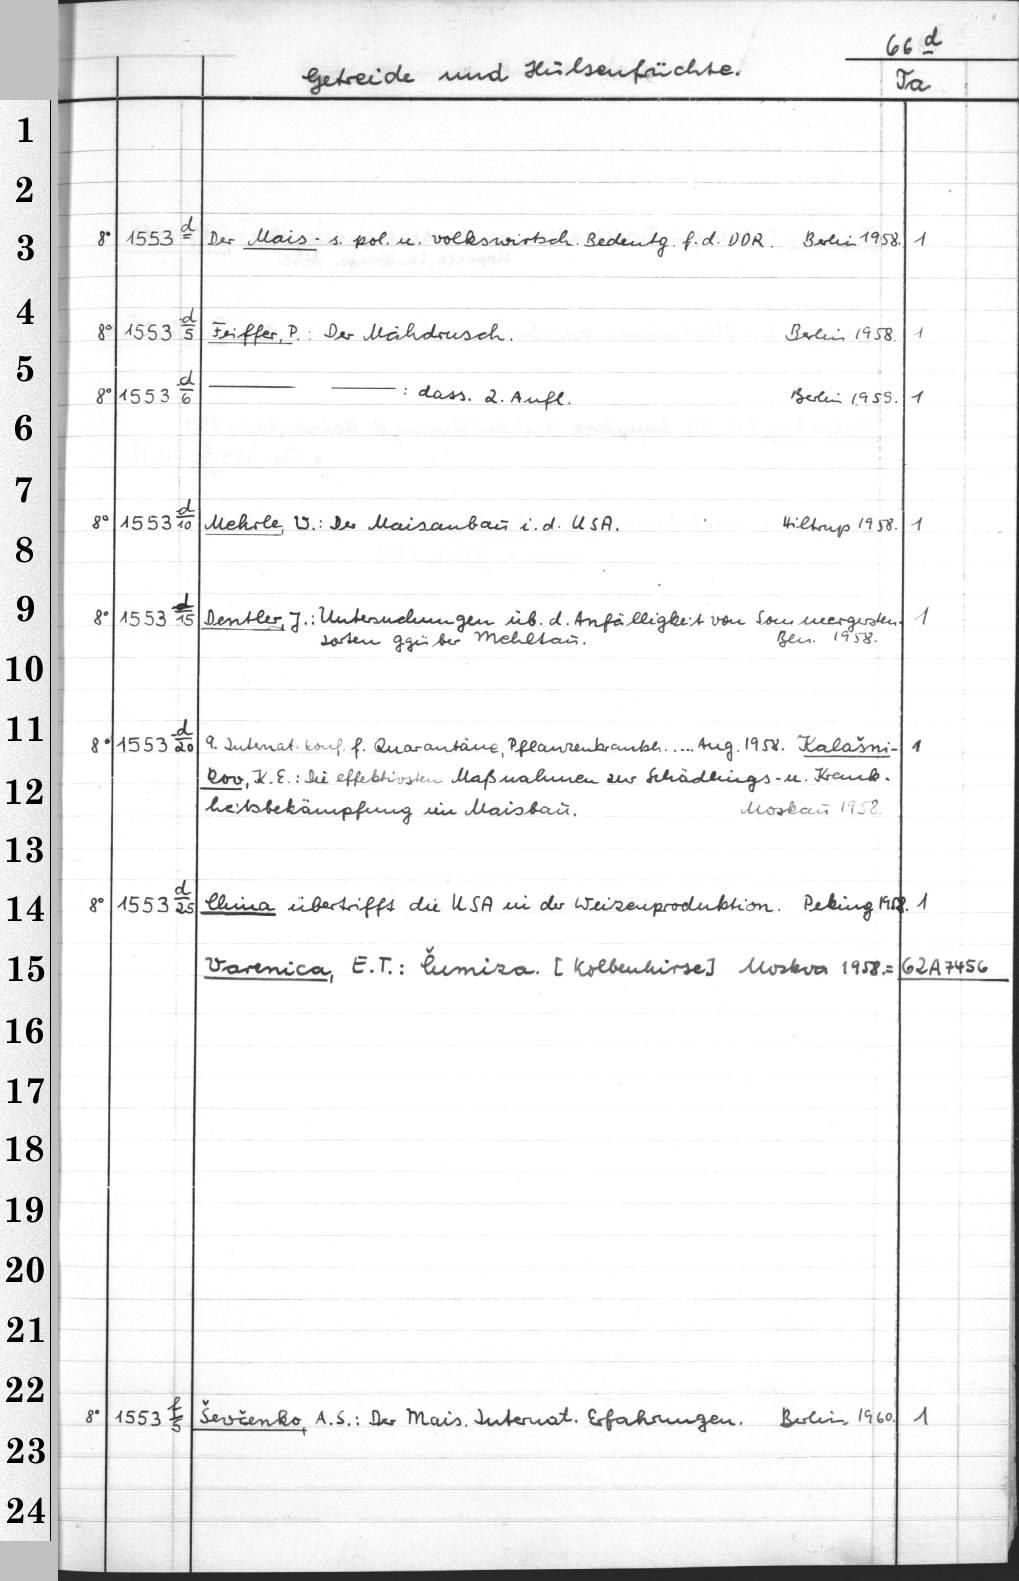 66 d
Getreide und Hülsenfrüchte.
Ta
1
2
3
8° 1553 d Der Mais- s. pol. u. volkswirtsch. Bedeutg. f. d. DDR. Berlin 1958. 1
4
8° 1553 d/5 Feiffer, P.: Der Mähdrusch. Berlin 1958. 1
5
8° 1553 d/6 ——— ———: dass. 2. Aufl. Berlin 1959. 1
6
7
8° 1553 d/10 Mehrle, W.: Der Maisanbau i. d. USA. Hiltrup 1958. 1
8
9
8° 1553 d/15 Dentler, J.: Untersuchungen üb. d. Anfälligkeit von Sommergersten- 1
sorten ggüber Mehltau. Ben. 1958.
10
11
8° 1553 d/20 9. Internat. Konf. f. Quarantäne, Pflanzenkrankh. .... Aug. 1958. Kalašni- 1
kov, K. E.: Die effektivsten Maßnahmen zur Schädlings- u. Krank-
12
heitsbekämpfung im Maisbau. Moskau 1958.
13
14
8° 1553 d/25 China übertrifft die USA in der Weizenproduktion. Peking 1958. 1
15
Varenica, E.T.: Čumiza. [Kolbenhirse] Moskva 1958.= 62A7456
16
17
18
19
20
21
22
8° 1553 f/5 Ševčenko, A.S.: Der Mais. Internat. Erfahrungen. Berlin 1960. 1
23
24